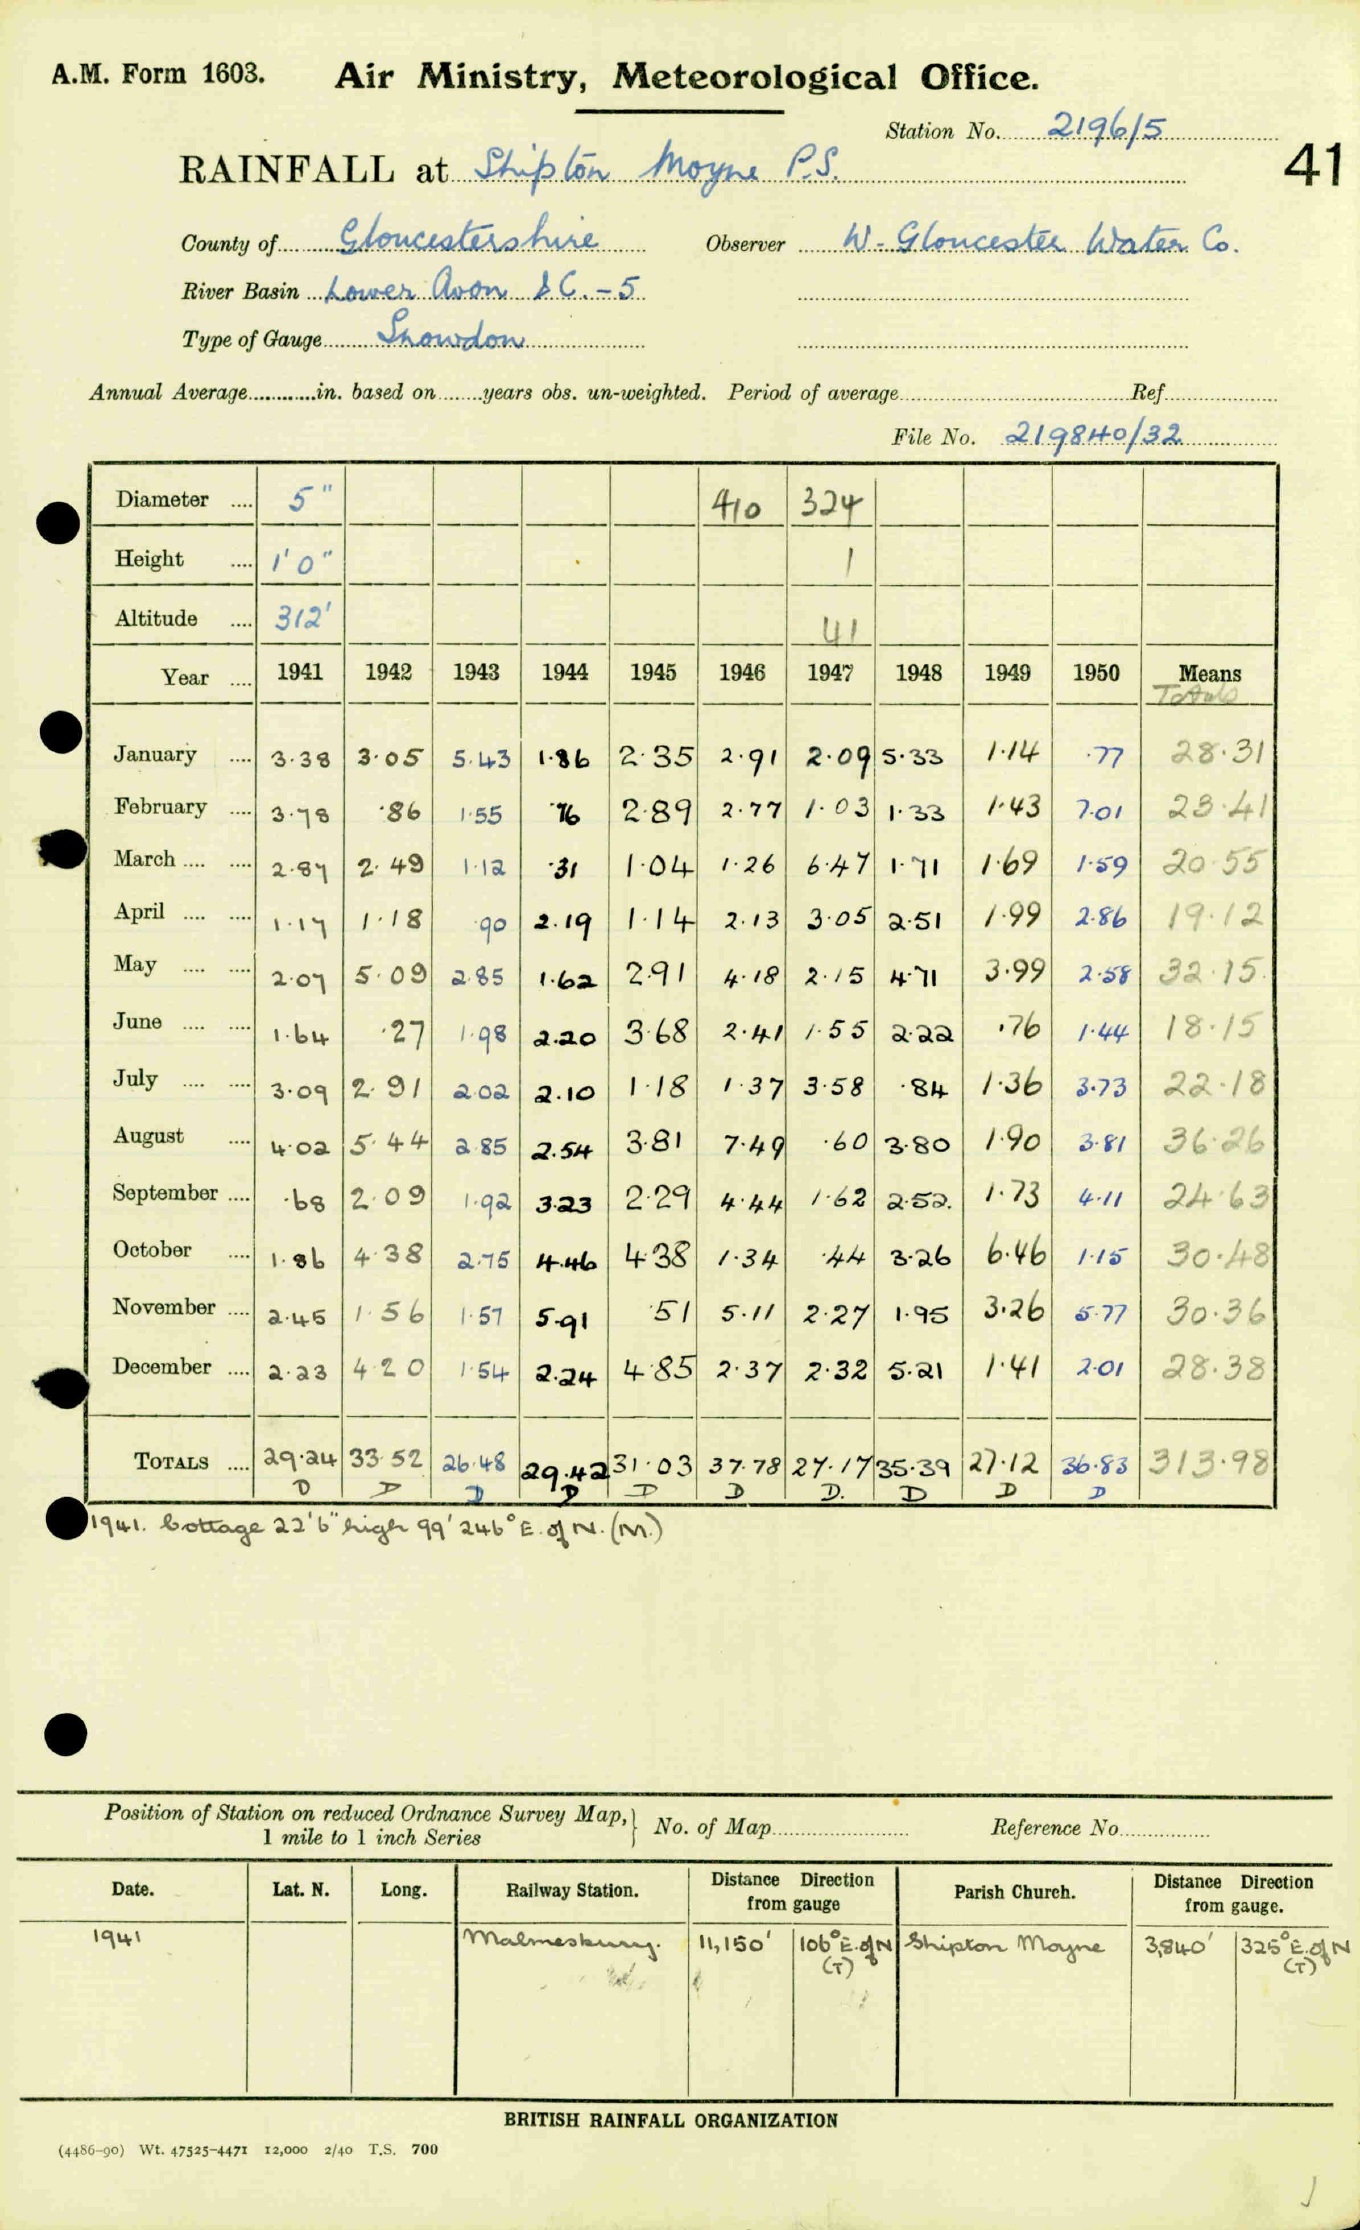 A.M. Form 1603. Air Ministry, Meteorological Office.
Station No. 2196/5
41
RAINFALL at Shipton Moyne P.S.
County of Gloucestershire Observer W. Gloucester Water Co.
River Basin Lower Avon &C. - 5
Type of Gauge Snowdon
Annual Average............in. based on........years obs. un-weighted. Period of average............Ref............
File No. 219840/32
Diameter .... 5" 410 324
Height .... 1' 0" 1
Altitude .... 312' 41
Year .... 1941 1942 1943 1944 1945 1946 1947 1948 1949 1950 Means
Totals
January .... 3.38 3.05 5.43 1.86 2.35 2.91 2.09 5.33 1.14 .77 28.31
February .... 3.78 .86 1.55 .76 2.89 2.77 1.03 1.33 1.43 7.01 23.41
March .... .... 2.87 2.49 1.12 .31 1.04 1.26 6.47 1.71 1.69 1.59 20.55
April .... .... 1.17 1.18 .90 2.19 1.14 2.13 3.05 2.51 1.99 2.86 19.12
May .... .... 2.07 5.09 2.85 1.62 2.91 4.18 2.15 4.71 3.99 2.58 32.15
June .... .... 1.64 .27 1.98 2.20 3.68 2.41 1.55 2.22 .76 1.44 18.15
July .... .... 3.09 2.91 2.02 2.10 1.18 1.37 3.58 .84 1.36 3.73 22.18
August .... 4.02 5.44 2.85 2.54 3.81 7.49 .60 3.80 1.90 3.81 36.26
September .... .68 2.09 1.92 3.23 2.29 4.44 1.62 2.52 1.73 4.11 24.63
October .... 1.86 4.38 2.75 4.46 4.38 1.34 .44 3.26 6.46 1.15 30.48
November .... 2.45 1.56 1.57 5.91 .51 5.11 2.27 1.95 3.26 5.77 30.36
December .... 2.23 4.20 1.54 2.24 4.85 2.37 2.32 5.21 1.41 2.01 28.38
TOTALS .... 29.24 33.52 26.48 29.42 31.03 37.78 27.17 35.39 27.12 36.83 313.98
D D D D D D D. D D D
1941. Cottage 22'6" high 99' 246° E. of N. (M.)
Position of Station on reduced Ordnance Survey Map,} No. of Map............ Reference No............
1 mile to 1 inch Series
Date. Lat. N. Long. Railway Station. Distance Direction from gauge Parish Church. Distance Direction from gauge.
1941 Malmesbury. 11,150' 106° E. of N (T) Shipton Moyne 3,840' 325° E. of N (T)
BRITISH RAINFALL ORGANIZATION
(4486-90) Wt. 47525-4471 12,000 2/40 T.S. 700